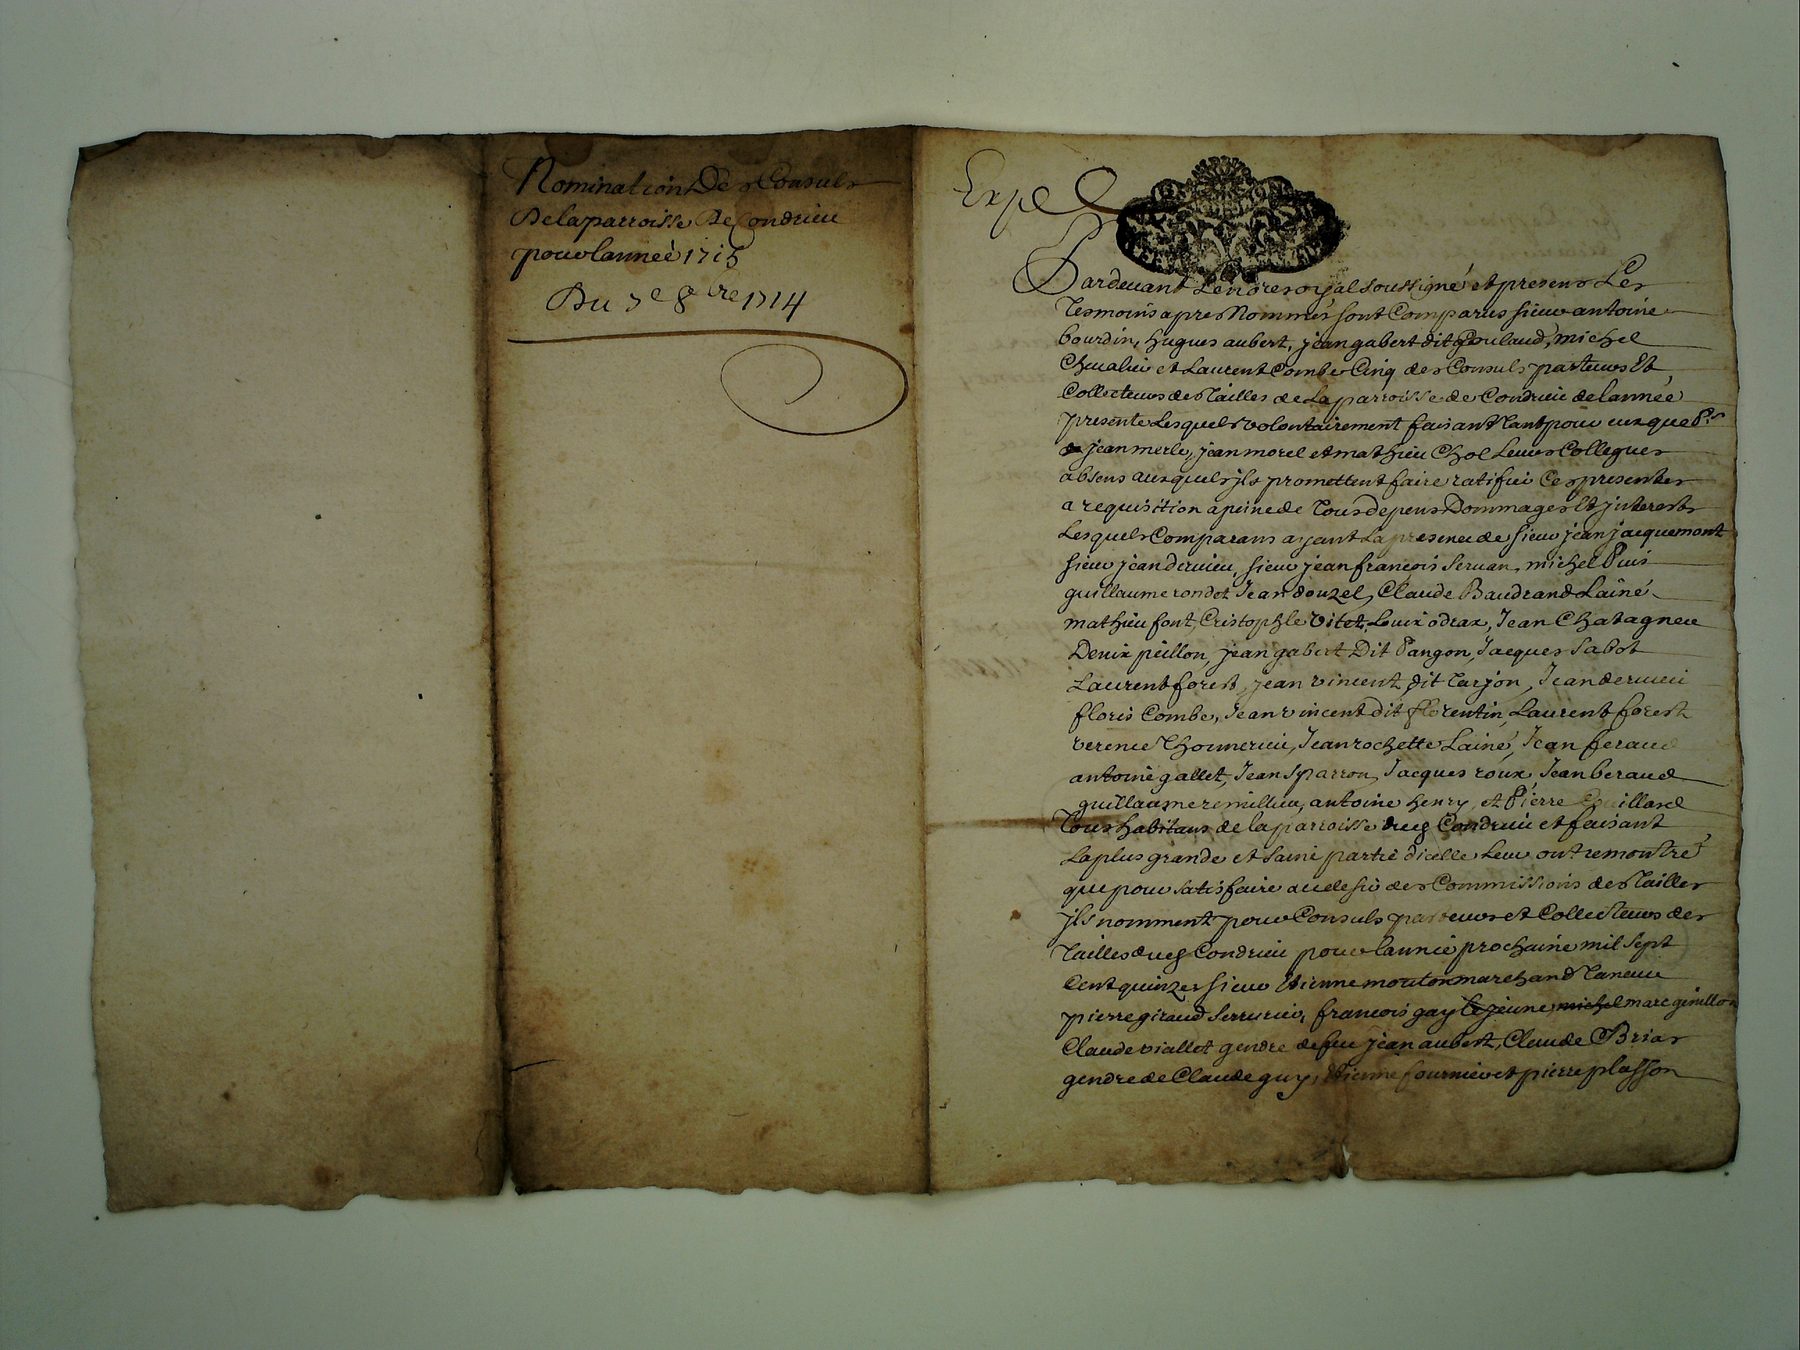 Nomination Des Consuls
De la parroisse De Condrieu
pour lanneé 1715
Du 7e 8bre 1714
Exped
Pardevant Le nore royal soussigné et presens Les
Tesmoins apres Nommés sont Comparus sieur antoine
bourdin, hugues aubert, jean gabert dit Poulaud, michel
Chevalier et Laurent Combe Cinq des Consuls parteurs Et
Collecteurs des Tailles de La parroisse de Condrieu de lannée
presente Lesquels volontairement faisant Tant pour eux que Pr
jean merle, jean morel et mathieu Chol Leurs Collegues
absens ausquels jls promettent faire ratifier Ces presentes
a requisition a peine de Tous depens Dommages Et jnterests
Lesquels Comparans ayant La presence de sieur jean jacquemont
sieur jean dervieu, sieur jean françois servan, michel Puis
guillaume rondet Jean douzel, Claude Baudrand Lainé
mathieu font, Cristophle vitet, Louix odrax, Jean Chatagneu
Denix peillon, jean gabert Dit Pangon, Jacques Sabot
Laurent forest, jean vincent dit Tarjon, Jean dervieu
floris Combe, Jean vincent dit florentin, Laurent forest
verence Thomerieu, Jean rochette Lainé, Jean feraud
antoine gallet, Jean Sparron, Jacques roux, Jean beraud
guillaume remillieu, antoine henry, et Pierre
Tous habitans de la parroisse dud Condrieu et faisant
La plus grande et saine partie dicelle Leur ont remontré
que pour satisfaire au desir des Commissions des Tailles
jls nomment pour Consuls parteurs et Collecteurs des
Tailles dud Condrieu pour lannée prochaine mil sept
Cent quinze sieur Etienne mouton marchand Taneur
pierre giraud serrurier, francois gay le jeune, michel marc genillon
Claude viallet gendre de feu jean aubert, Claude Brias
gendre de Claude guy, Etienne fournier et pierre plasson